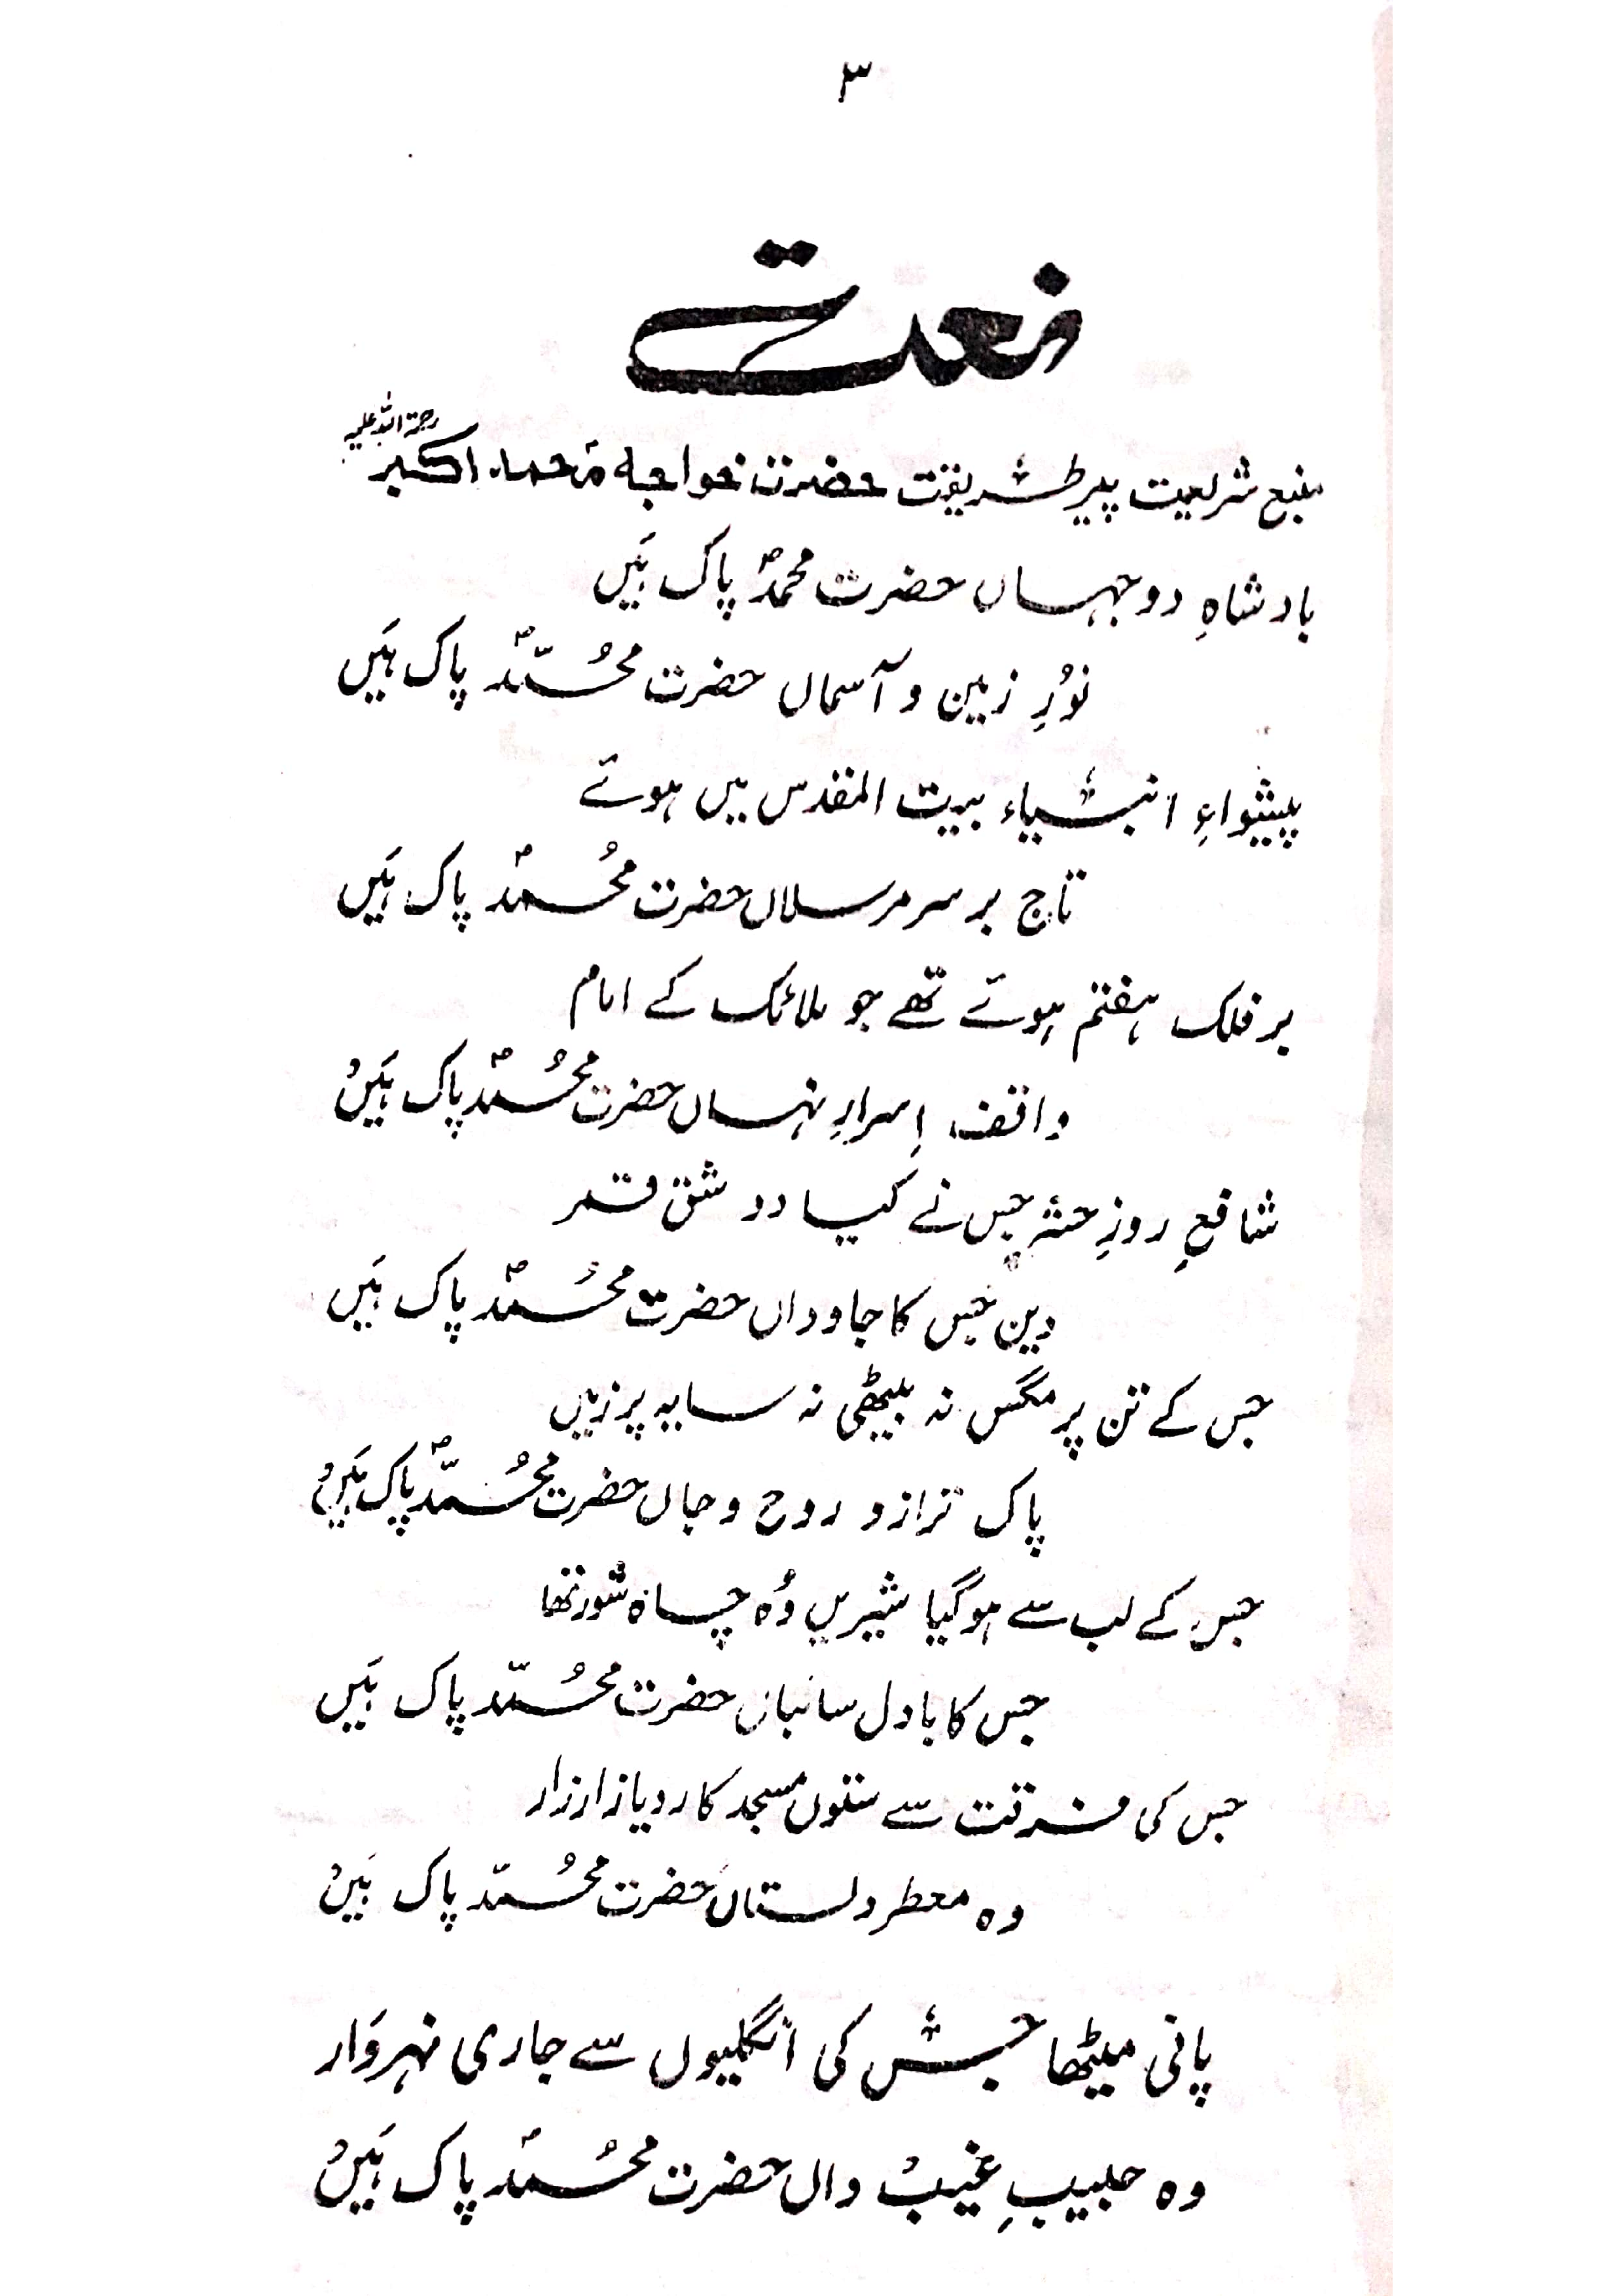 ۳
نعت
منبع شریعت پیر طریقت حضرت خواجہ محمد اکبر رحمۃ اللہ علیہ
بادشاہِ دو جہاں حضرت محمدؐ پاک ہَیں
نوُرِ زمین و آسماں حضرت محُمّدؐ پاک ہَیں
پیشواءِ انبیاء بیت المقدس میں ہوئے
تاج بر سر مرسلاں حضرت محُمدؐ پاک ہَیں
بر فلک ہفتم ہوئے تھے جو ملائک کے امام
واقف اِسرارِ نہاں حضرت محُمدؐ پاک ہَیں
شافعِ روزِ حشر جس نے کیا دو شق قمر
دین جس کا جاوداں حضرت محُمدؐ پاک ہَیں
جس کے تن پر مگس نہ بیٹھی نہ سایہ پر زمیں
پاک تر از و روح و جاں حضرت محُمّدؐ پاک ہَیں
جس کے لب سے ہو گیا شیریں وُہ چاہ شور تھا
جس کا بادل سائباں حضرت محُمّد پاک ہَیں
جس کی فرقت سے ستوں مسجد کا رویا زار زار
وہ معطر دلستاں حضرت محُمّد پاک ہَیں
پانی میٹھا جس کی انگلیوں سے جاری نہر وَار
وہ حبیبِ غیب داں حضرت محُمدؐ پاک ہَیں